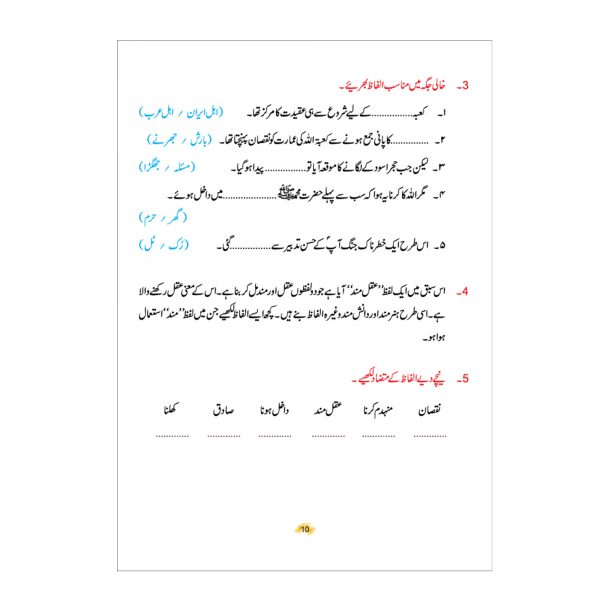 3۔ خالی جگہ میں مناسب الفاظ بھریئے۔
۱۔ کعبہ................کے لیے شروع سے ہی عقیدت کا مرکز تھا۔ (اہل ایران / اہل عرب)
۲۔ ...............کا پانی جمع ہونے سے کعبۃ اللہ کی عمارت کو نقصان پہنچتا تھا۔ (بارش / جھرنے)
۳۔ لیکن جب حجر اسود کے لگانے کا موقعہ آیا تو................پیدا ہو گیا۔ (مسئلہ / جھگڑا)
۴۔ مگر اللہ کا کرنا یہ ہوا کہ سب سے پہلے حضرت محمدﷺ.....................میں داخل ہوئے۔
(گھر / حرم)
۵۔ اس طرح ایک خطرناک جنگ آپؐ کے حسن تدبیر سے................گئی۔ (رُک / ٹل)
4۔ اس سبق میں ایک لفظ ”عقل مند“ آیا ہے جو دو لفظوں عقل اور مند مل کر بنا ہے۔ اس کے معنی عقل رکھنے والا
ہے۔ اسی طرح ہنر مند اور دانش مند وغیرہ الفاظ بنے ہیں۔ کچھ ایسے الفاظ لکھیے جن میں لفظ ”مند“ استعمال
ہوا ہو۔
5۔ نیچے دیے الفاظ کے متضاد لکھیے۔
نقصان منہدم کرنا عقل مند داخل ہونا صادق کھلنا
............. ............. ............. ............. ............. .............
10